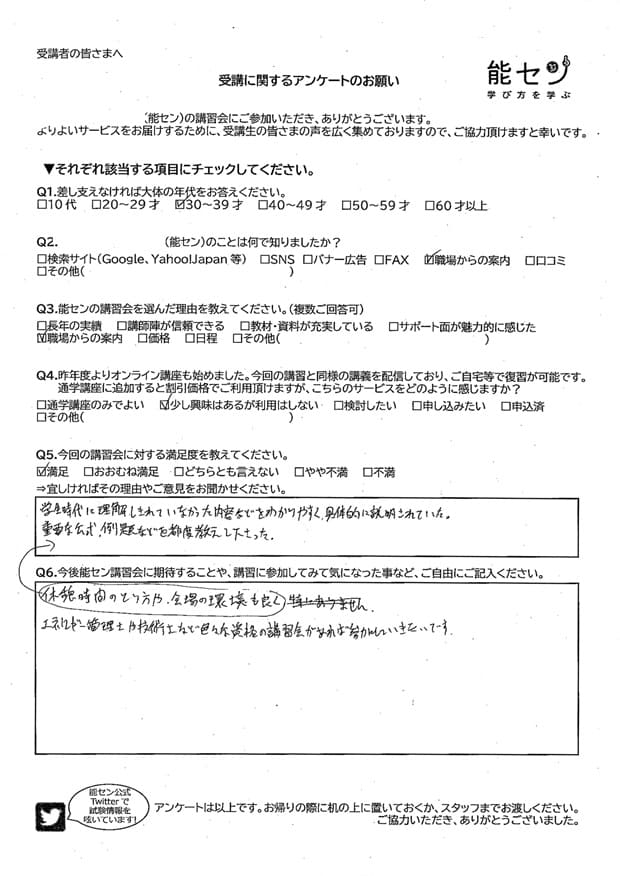 受講者の皆さまへ
受講に関するアンケートのお願い
能セン
学び方を学ぶ
(能セン)の講習会にご参加いただき、ありがとうございます。
よりよいサービスをお届けするために、受講生の皆さまの声を広く集めておりますので、ご協力頂けますと幸いです。
▼それぞれ該当する項目にチェックしてください。
Q1.差し支えなければ大体の年代をお答えください。
□10代 □20~29才 ☑30~39才 □40~49才 □50~59才 □60才以上
Q2. (能セン)のことは何で知りましたか?
□検索サイト(Google、Yahoo!Japan等) □SNS □バナー広告 □FAX ☑職場からの案内 □口コミ
□その他( )
Q3.能センの講習会を選んだ理由を教えてください。(複数ご回答可)
□長年の実績 □講師陣が信頼できる □教材・資料が充実している □サポート面が魅力的に感じた
☑職場からの案内 □価格 □日程 □その他( )
Q4.昨年度よりオンライン講座も始めました。今回の講習と同様の講義を配信しており、ご自宅等で復習が可能です。
通学講座に追加すると割引価格でご利用頂けますが、こちらのサービスをどのように感じますか?
□通学講座のみでよい ☑少し興味はあるが利用はしない □検討したい □申し込みたい □申込済
□その他( )
Q5.今回の講習会に対する満足度を教えてください。
☑満足 □おおむね満足 □どちらとも言えない □やや不満 □不満
⇒宜しければその理由やご意見をお聞かせください。
学生時代に理解しきれていなかった内容などをわかりやすく、具体的に説明されていた。
重要な公式、例題などを都度教えて下さった。
Q6.今後能セン講習会に期待することや、講習に参加してみて気になった事など、ご自由にご記入ください。
休憩時間のとり方や、会場の環境も良く 特にありません.
エネルギー管理士や技術士など色々な資格の講習会があれば参加していきたいです.
能セン公式
Twitterで
試験情報を
呟いています!
アンケートは以上です。お帰りの際に机の上に置いておくか、スタッフまでお渡しください。
ご協力いただき、ありがとうございました。